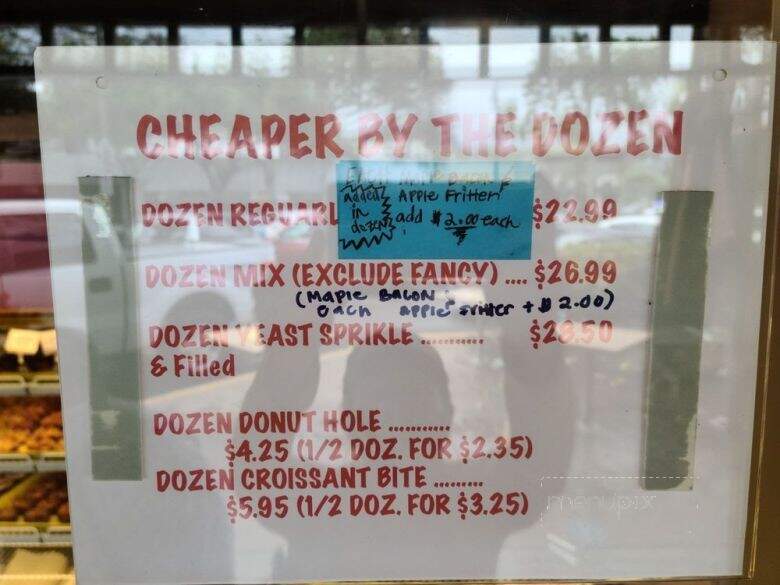 CHEAPER BY THE DOZEN
Each Maple Bacon &
added Apple Fritter
in add $2.00 each
dozen
DOZEN REGUARL $22.99
DOZEN MIX (EXCLUDE FANCY) .... $26.99
(Maple Bacon
each apple fritter + $2.00)
DOZEN YEAST SPRIKLE ........... $28.50
& Filled
DOZEN DONUT HOLE ...........
$4.25 (1/2 DOZ. FOR $2.35)
DOZEN CROISSANT BITE .........
$5.95 (1/2 DOZ. FOR $3.25)
menupix